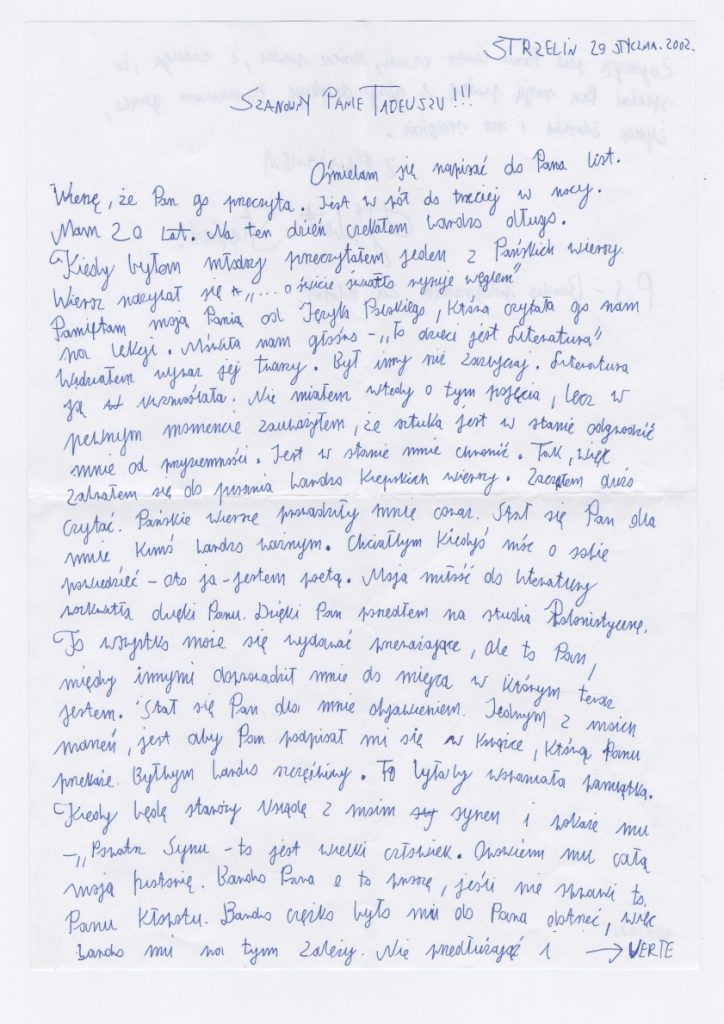 STRZELIN 29 STYCZNIA. 2002.
SZANOWNY PANIE TADEUSZU!!!
Ośmielam się napisać do Pana list.
Wierzę, że Pan go przeczyta. Jest w pół do trzeciej w nocy.
Mam 20 Lat. Na ten dzień czekałem bardzo długo.
Kiedy byłem młodszy przeczytałem jeden z Pańskich wierszy.
Wiersz nazywał się „... o świcie światło rysuje węglem"
Pamiętam moją Panią od Języka Polskiego, która czytała go nam
na lekcji. Mówiła nam głośno - „to dzieci jest Literatura"
Widziałem wyraz jej twarzy. Był inny niż zazwyczaj. Literatura
ją wzniosłała. Nie miałem wtedy o tym pojęcia, lecz w
pewnym momencie zauważyłem, że sztuka jest w stanie odgrodzić
mnie od przyziemności. Jest w stanie mnie chronić. Tak, więc
zabrałem się do pisania bardzo kiepskich wierszy. Zacząłem dużo
czytać. Pańskie wiersze prowadziły mnie coraz. Stał się Pan dla
mnie kimś bardzo ważnym. Chciałbym kiedyś móc o sobie
powiedzieć - oto ja - jestem poetą. Moja miłość do literatury
rozkwitła dzięki Panu. Dzięki Pan poszedłem na studia Polonistyczne.
To wszystko może się wydawać przerażające, ale to Pan,
między innymi doprowadził mnie do miejsca w którym teraz
jestem. Stał się Pan dla mnie objawieniem. Jednym z moich
marzeń, jest aby Pan podpisał mi się w książce, którą Panu
przekażę. Byłbym bardzo szczęśliwy. To byłaby wspaniała pamiątka.
Kiedy będę starszy usiądę z moim synem i pokażę mu
- „Popatrz Synu - to jest wielki człowiek. Opowiem mu całą
moją historię. Bardzo Pana o to proszę, jeśli nie sprawi to
Panu Kłopotu. Bardzo ciężko było mi do Pana dotrzeć, więc
bardzo mi na tym zależy. Nie przedłużając i → VERTE